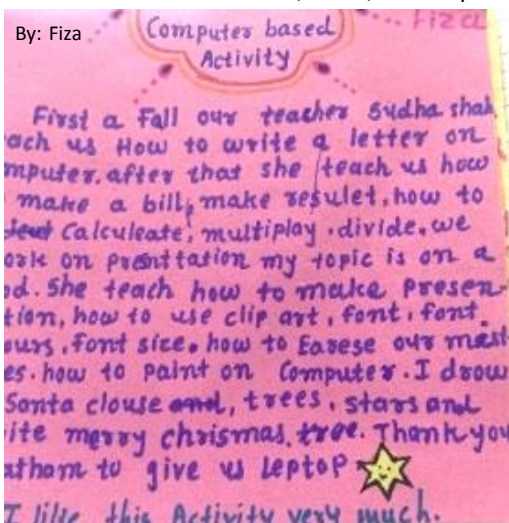 By: Fiza
Fiza
Computer based
Activity
First a Fall our teacher Sudha shah
ach us How to write a letter on
mputer. after that she teach us how
make a bill, make resulet, how to
Calculeate, multiplay . divide. we
ork on prenttation my topic is on a
od. She teach how to make Presen-
tion, how to use clip art, font, font
ours, font size. how to Earese our mest
es. how to paint on Computer. I drow
Santa clouse and, trees, stars and
ite merry chrismas, tree. Thank you
atham to give us Leptop
I like this Activity very much.